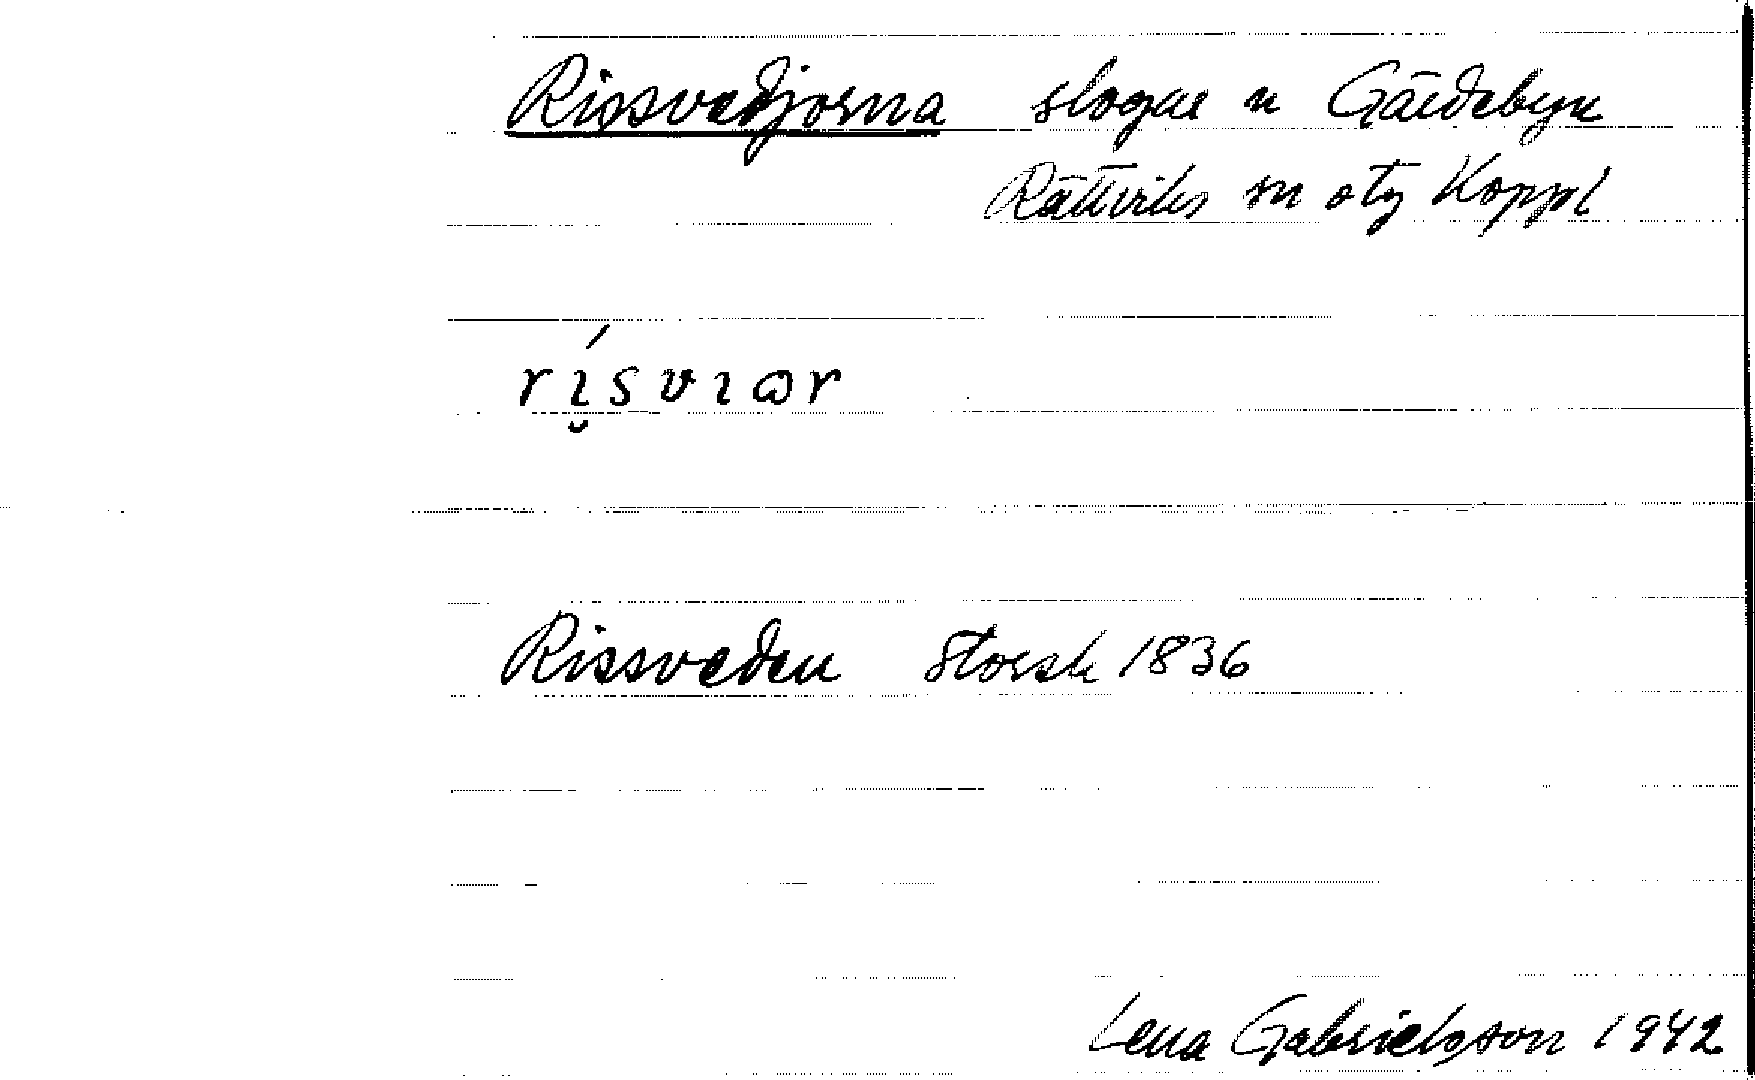 Rissvedjorna slogar n Gärdebyn
Rättviks sn otg Koppl
rísvıɷr
Rissveden Storsk 1836
Lena Gabrielsson 1942